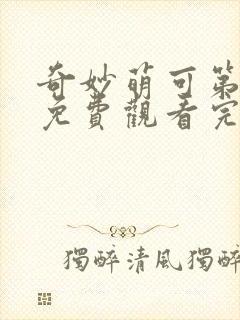 奇妙萌可第
免費觀看完
獨醉清風獨醉